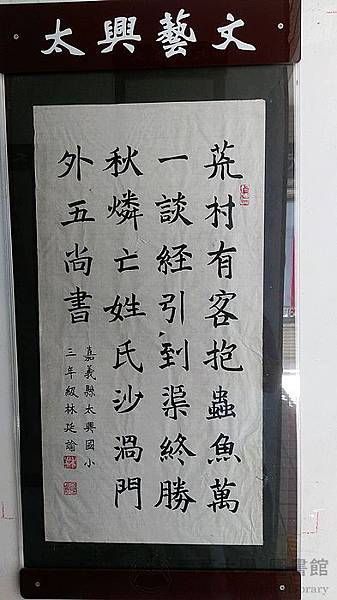 文藝興太
荒村有客抱蟲魚萬
一談経引到渠終勝
秋燐亡姓氏沙渦門
外五尚書
嘉義縣太興國小
三年級林廷諭
書館
brary